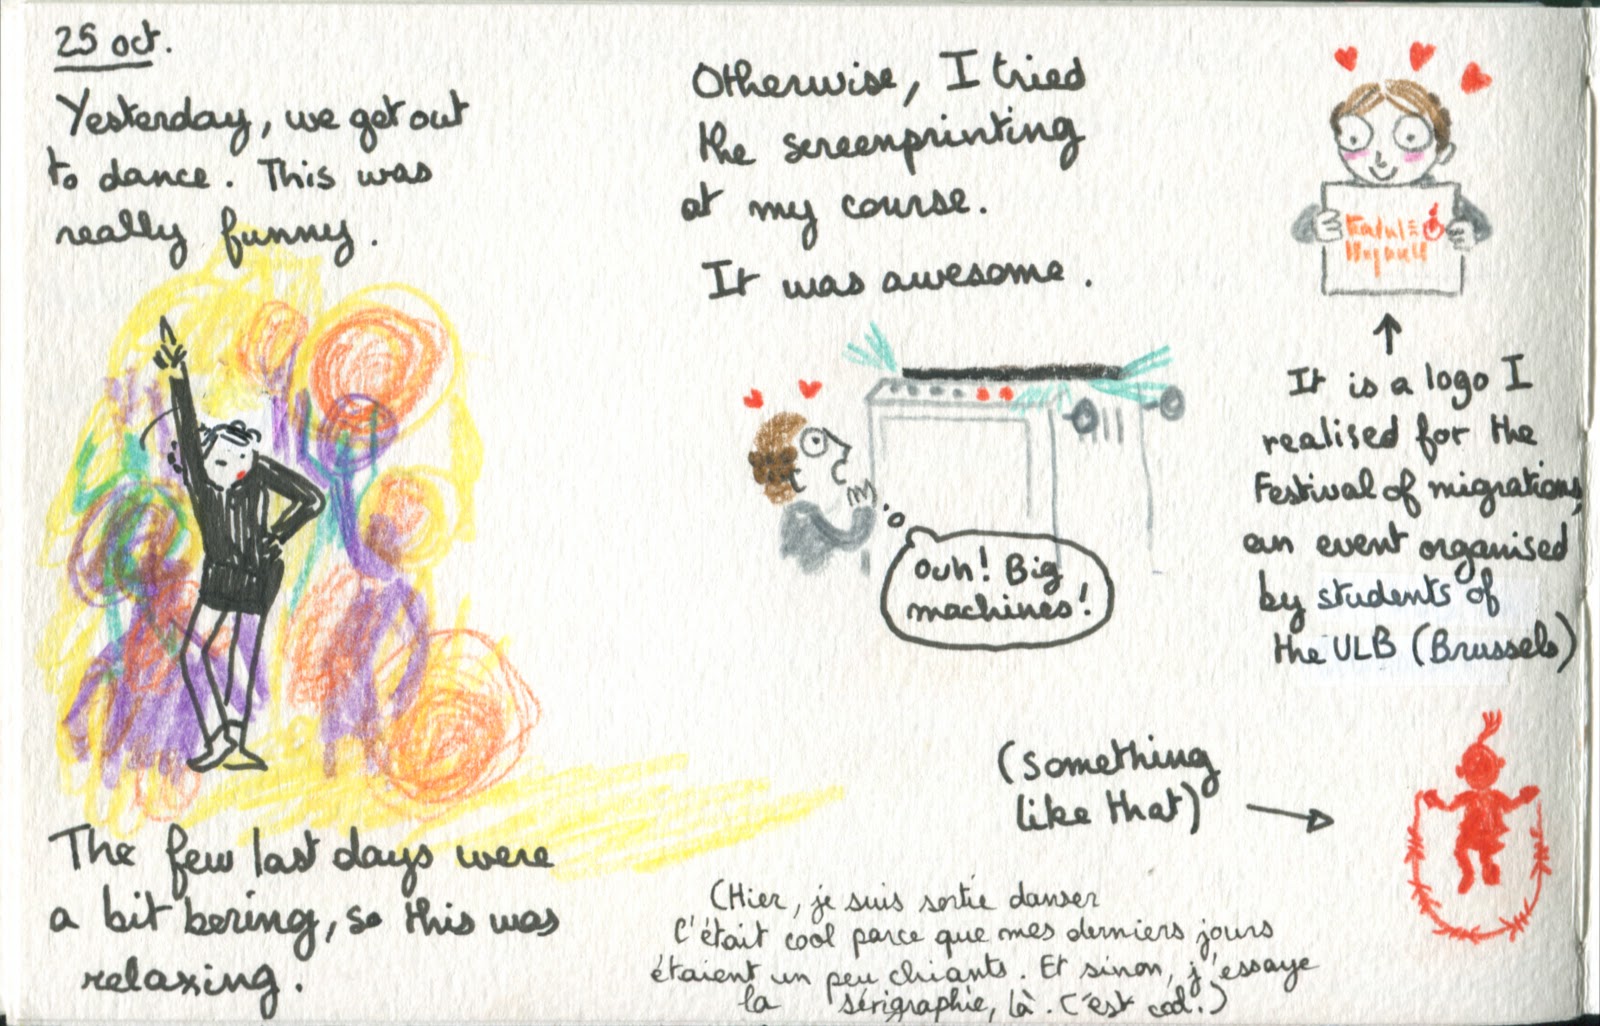 25 oct.
Yesterday, we get out
to dance. This was
really funny.
The few last days were
a bit boring, so this was
relaxing.
Otherwise, I tried
the screenprinting
at my course.
It was awesome.
Ouh! Big
machines!
It is a logo I
realised for the
Festival of migrations,
an event organised
by students of
the ULB (Brussels)
(something
like that)
(Hier, je suis sortie danser
C'était cool parce que mes derniers jours
étaient un peu chiants. Et sinon, j'essaye
la sérigraphie, là. C'est cool.)